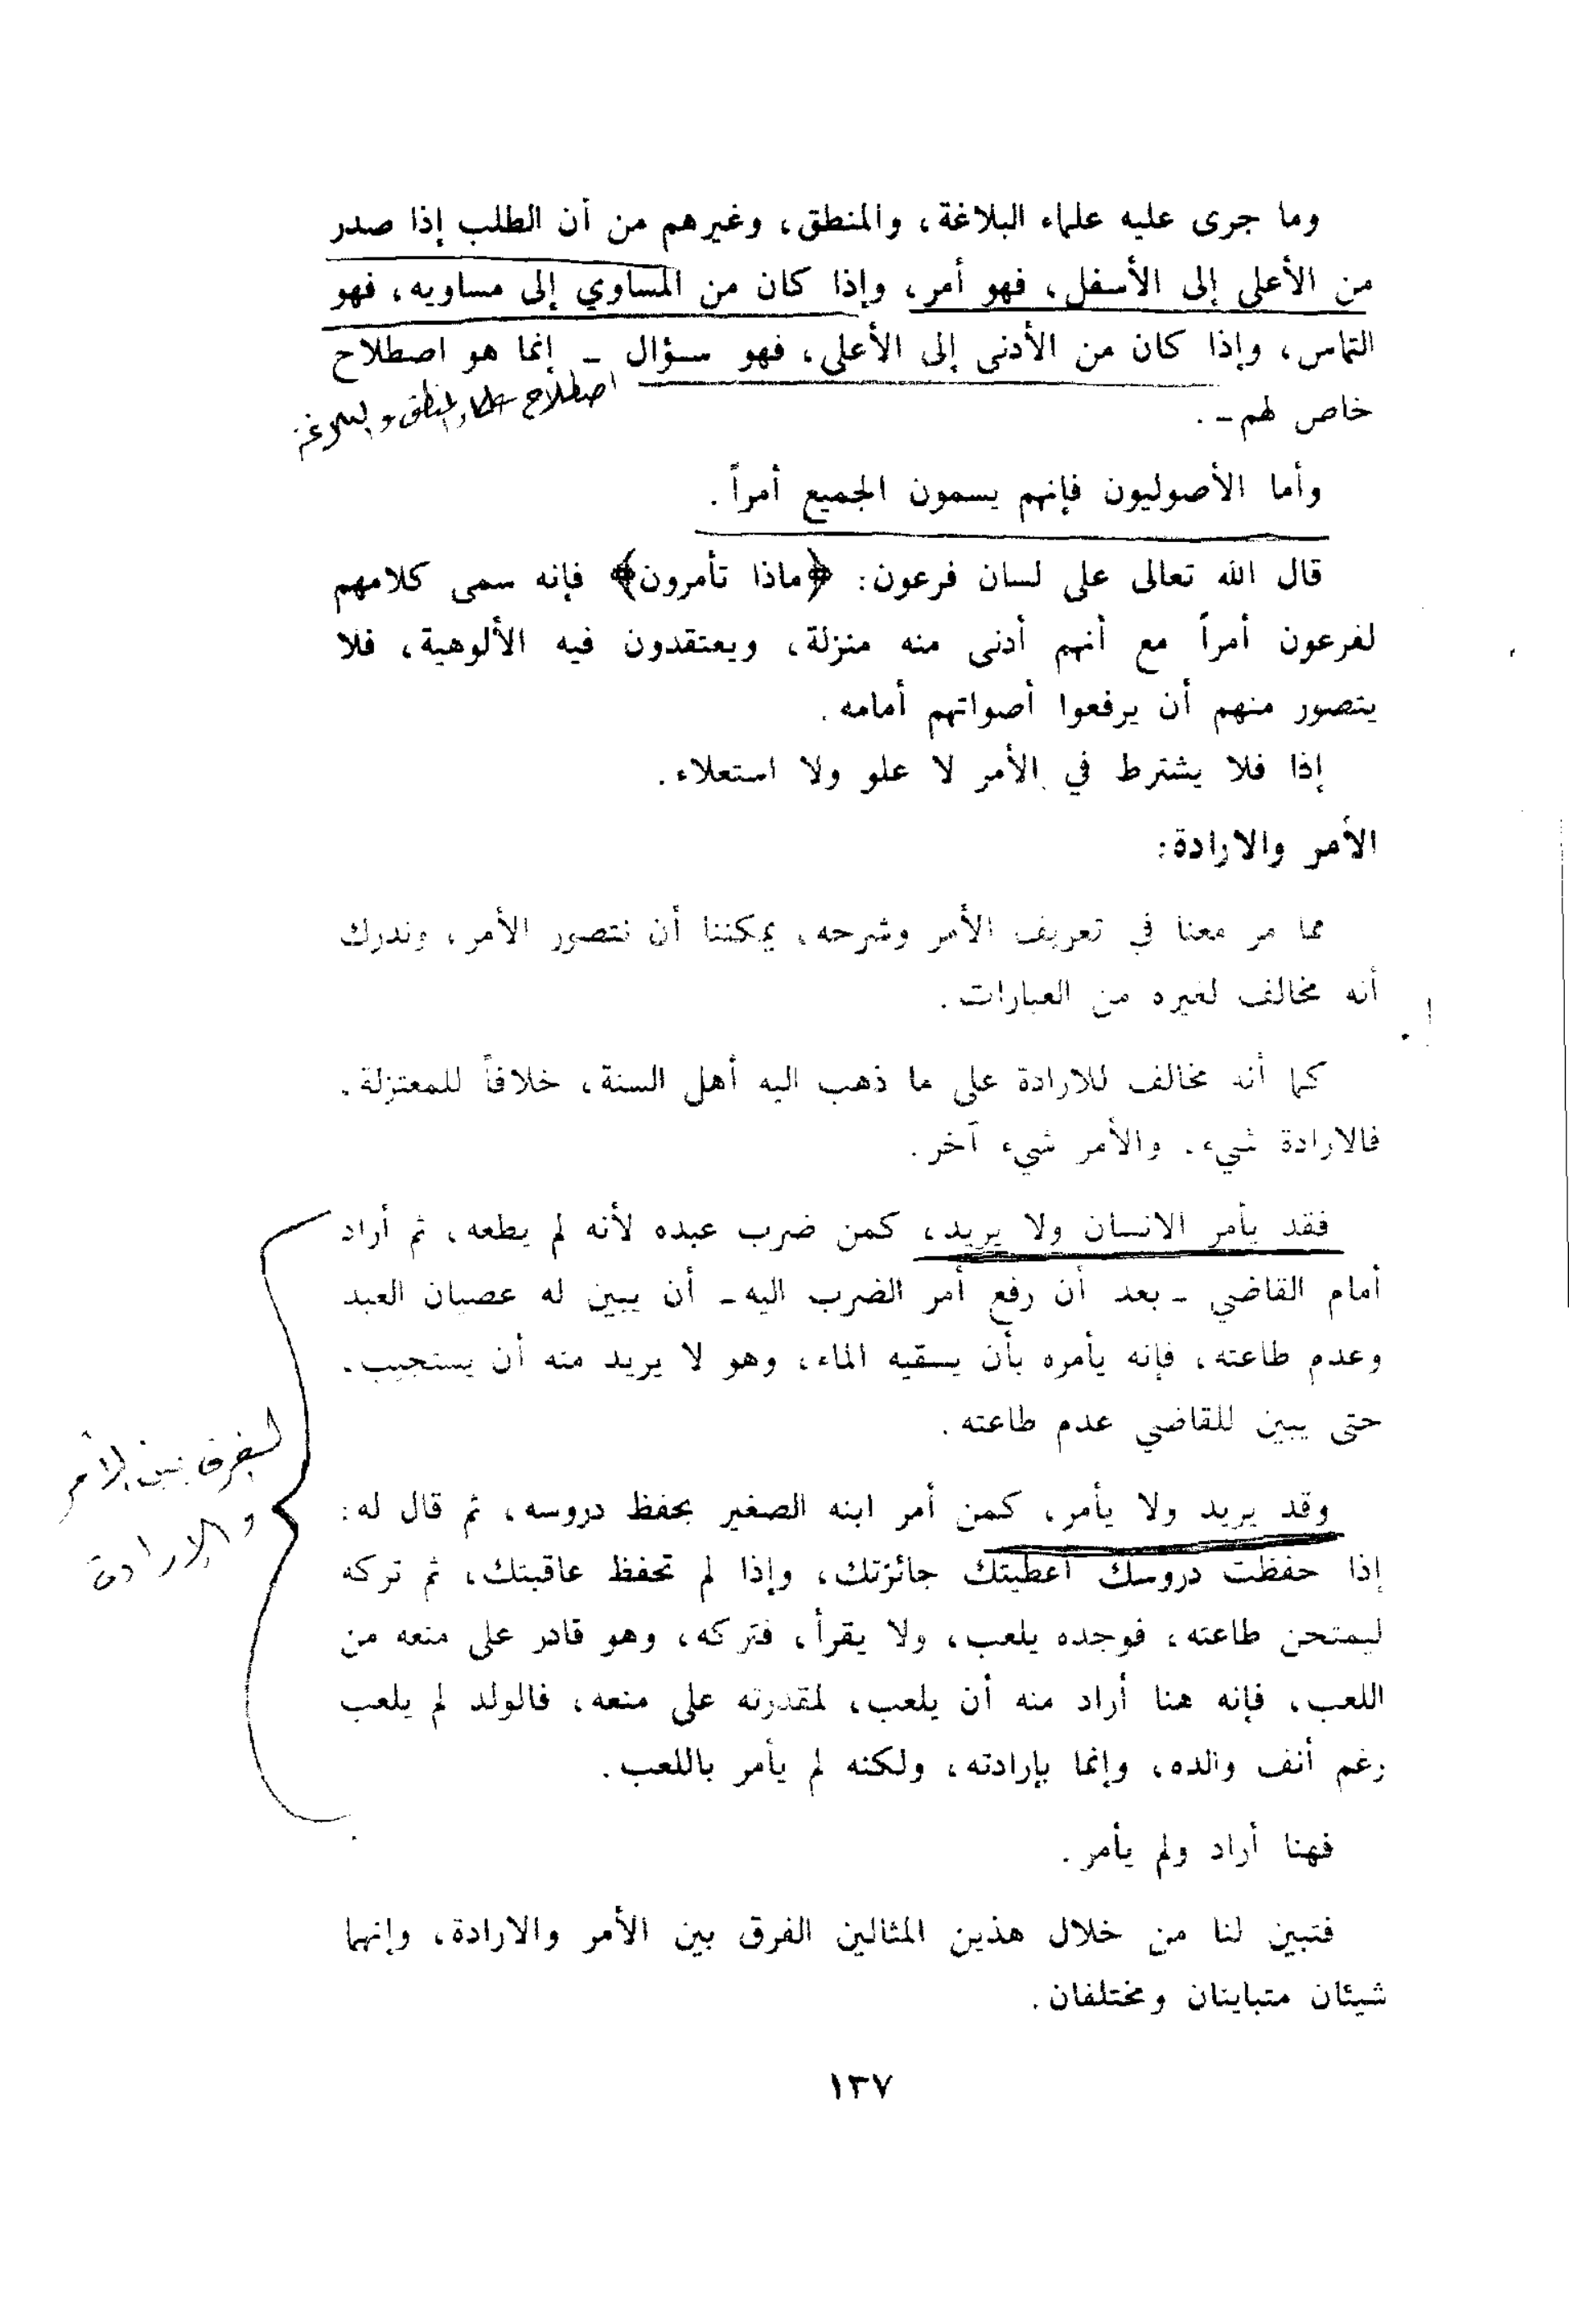 وما جرى عليه علماء البلاغة، والمنطق، وغيرهم من أن الطلب إذا صدر
من الأعلى إلى الأسفل، فهو أمر، وإذا كان من المساوي إلى مساويه، فهو
التماس، وإذا كان من الأدنى إلى الأعلى، فهو سؤال ـ إنما هو اصطلاح
خاص لهم ـ .
اصطلاح علماء المنطق والبلاغة
وأما الأصوليون فإنهم يسمون الجميع أمراً .
قال الله تعالى على لسان فرعون: ﴿ماذا تأمرون﴾ فإنه سمى كلامهم
لفرعون أمراً مع أنهم أدنى منه منزلة، ويعتقدون فيه الألوهية، فلا
يتصور منهم أن يرفعوا أصواتهم أمامه .
إذا فلا يشترط في الأمر لا علو ولا استعلاء .
الأمر والارادة:
مما مر معنا في تعريف الأمر وشرحه، يمكننا أن نتصور الأمر، وندرك
أنه مخالف لغيره من العبارات .
كما أنه مخالف للارادة على ما ذهب اليه أهل السنة، خلافاً للمعتزلة .
فالارادة شيء، والأمر شيء آخر .
فقد يأمر الانسان ولا يريد، كمن ضرب عبده لأنه لم يطعه، ثم أراد
أمام القاضي ـ بعد أن رفع أمر الضرب اليه ـ أن يبين له عصيان العبد
وعدم طاعته، فإنه يأمره بأن يسقيه الماء، وهو لا يريد منه أن يستجيب،
حتى يبين للقاضي عدم طاعته .
الفرق بين الأمر
والإرادة
وقد يريد ولا يأمر، كمن أمر ابنه الصغير بحفظ دروسه، ثم قال له:
إذا حفظت دروسك أعطيتك جائزتك، وإذا لم تحفظ عاقبتك، ثم تركه
ليمتحن طاعته، فوجده يلعب، ولا يقرأ، فتركه، وهو قادر على منعه من
اللعب، فإنه هنا أراد منه أن يلعب، لمقدرته على منعه، فالولد لم يلعب
رغم أنف والده، وإنما بإرادته، ولكنه لم يأمر باللعب .
فهنا أراد ولم يأمر .
فتبين لنا من خلال هذين المثالين الفرق بين الأمر والارادة، وإنهما
شيئان متباينان ومختلفان .
١٣٧